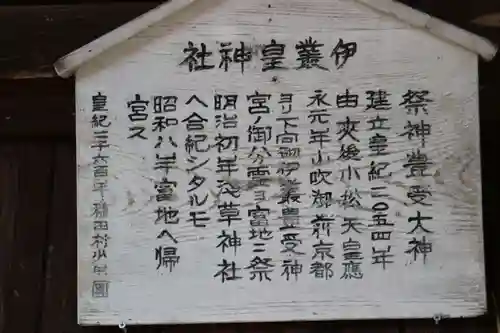 伊叢皇神社
祭神豊受大神
建立皇紀二〇五四年
由来後小松天皇應
永元年小吹御前京都
ヨリ下向御伊叢豊受神
宮ノ御分霊ヲ當地ニ祭
明治初年花草神社
ヘ合紀シタルモ
昭和八年當地ヘ帰
宮ス
皇紀二千六百年 稲田村小